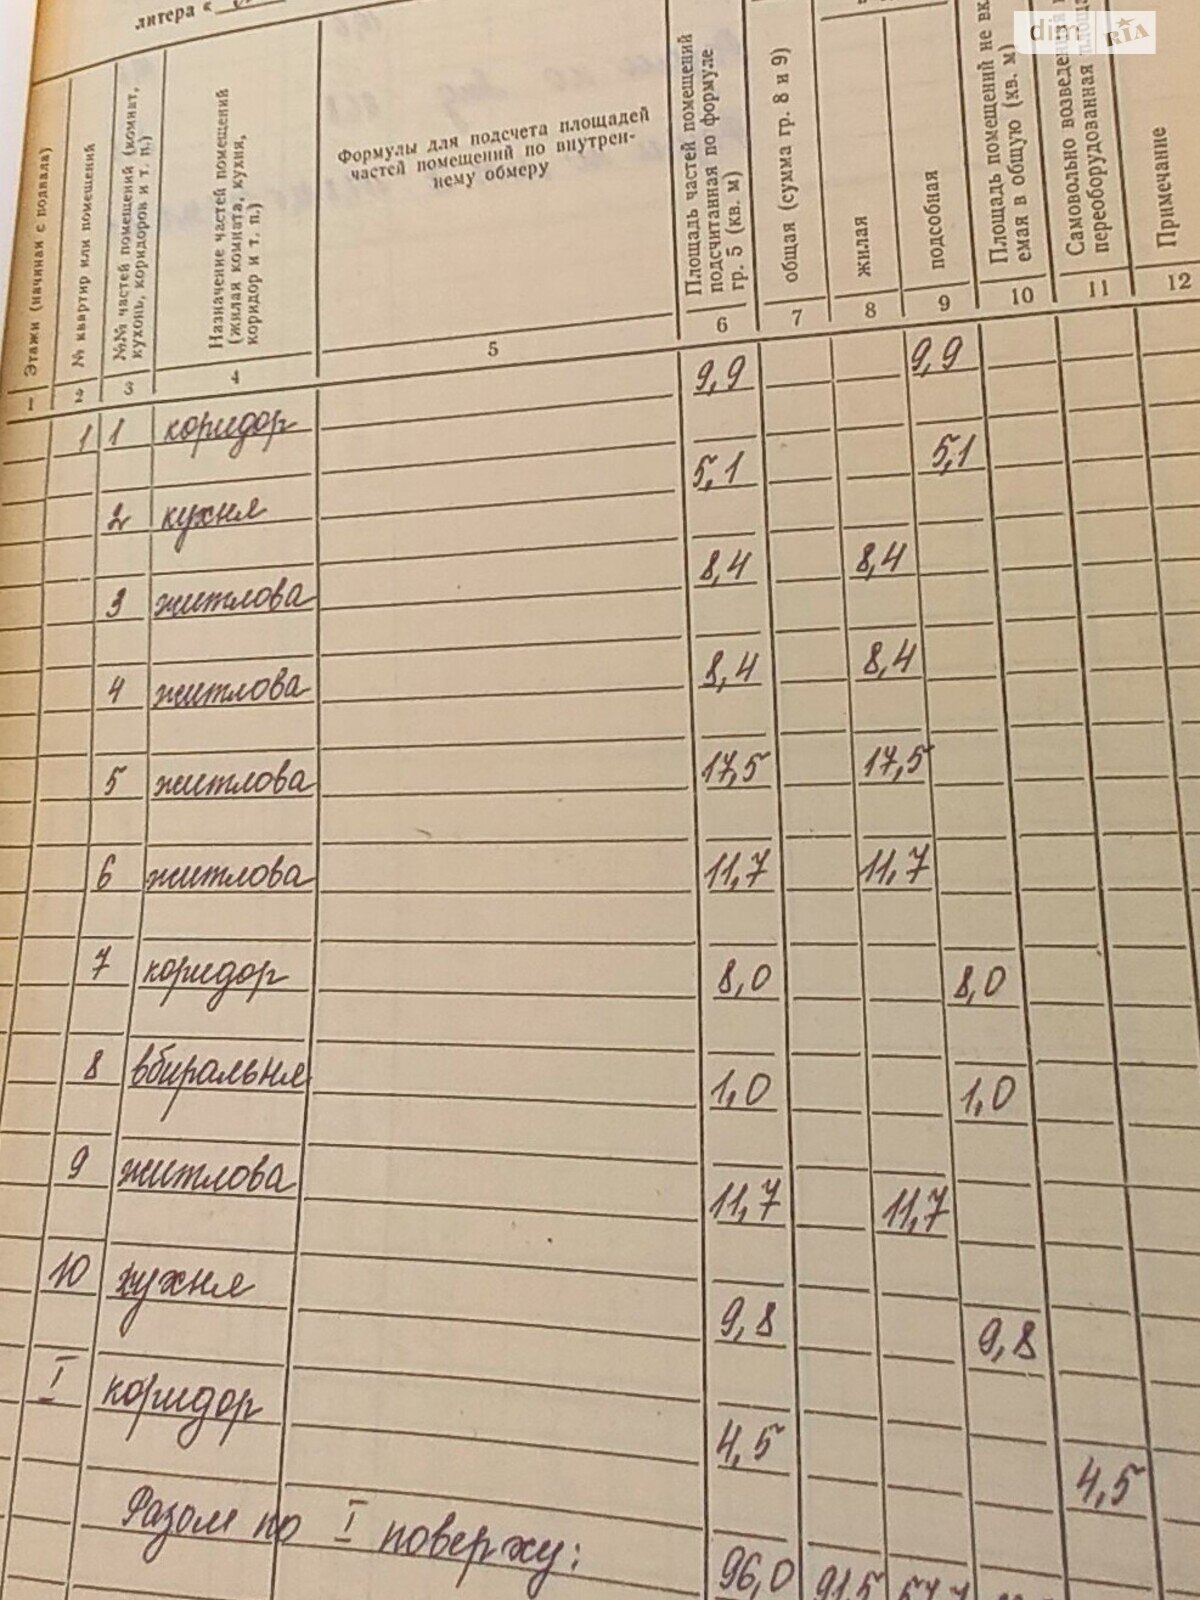 литера «
dim RIA
Этажи (начиная с подвала)
№ квартир или помещений
№№ частей помещений (комнат,
кухонь, коридоров и т. п.)
Назначение частей помещений
(жилая комната, кухня,
коридор и т. п.)
Формулы для подсчета площадей
частей помещений по внутрен-
нему обмеру
Площадь частей помещений
подсчитанная по формуле
гр. 5 (кв. м)
общая (сумма гр. 8 и 9)
жилая
подсобная
Площадь помещений не вк
емая в общую (кв. м)
Самовольно возведен
переоборудованная площа
Примечание
1 2 3 4 5 6 7 8 9 10 11 12
1 1 коридор 9,9 9,9
2 кухня 5,1 5,1
3 житлова 8,4 8,4
4 житлова 8,4 8,4
5 житлова 17,5 17,5
6 житлова 11,7 11,7
7 коридор 8,0 8,0
8 вбиральня 1,0 1,0
9 житлова 11,7 11,7
10 кухня 9,8 9,8
I коридор 4,5 4,5
Разом по I поверху: 96,0 91,5 57,7